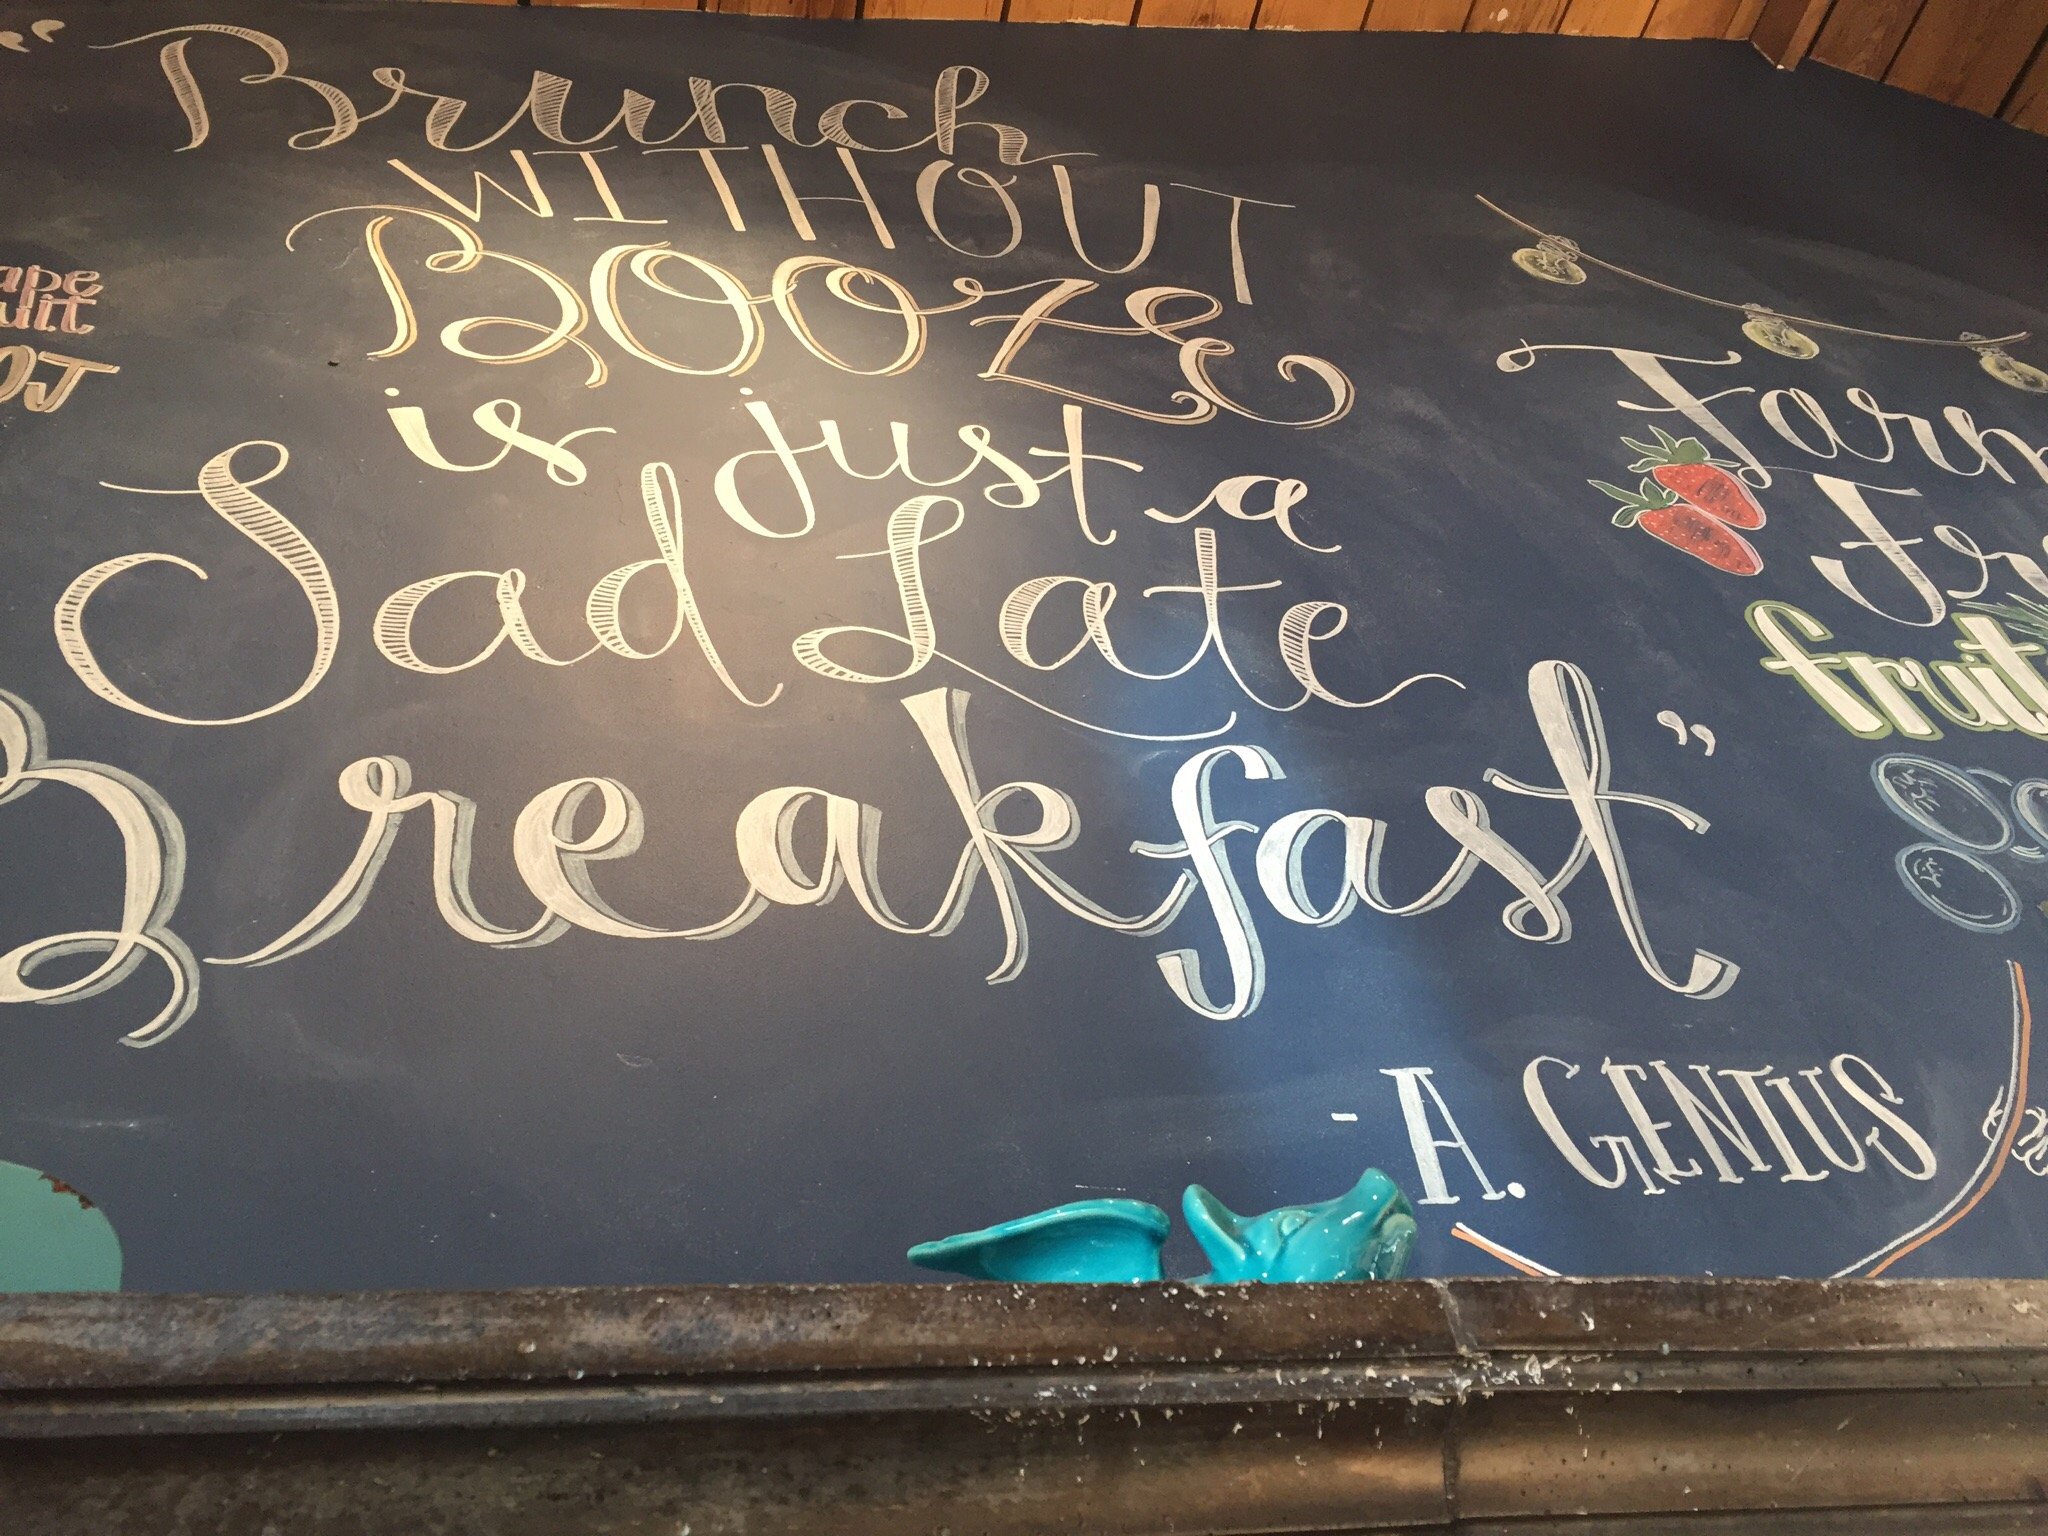 "Brunch
WITHOUT
BOOZE
is just a
Sad Late
Breakfast"
- A. GENIUS
ape
uit
OJ
Farm
Fre
fruit